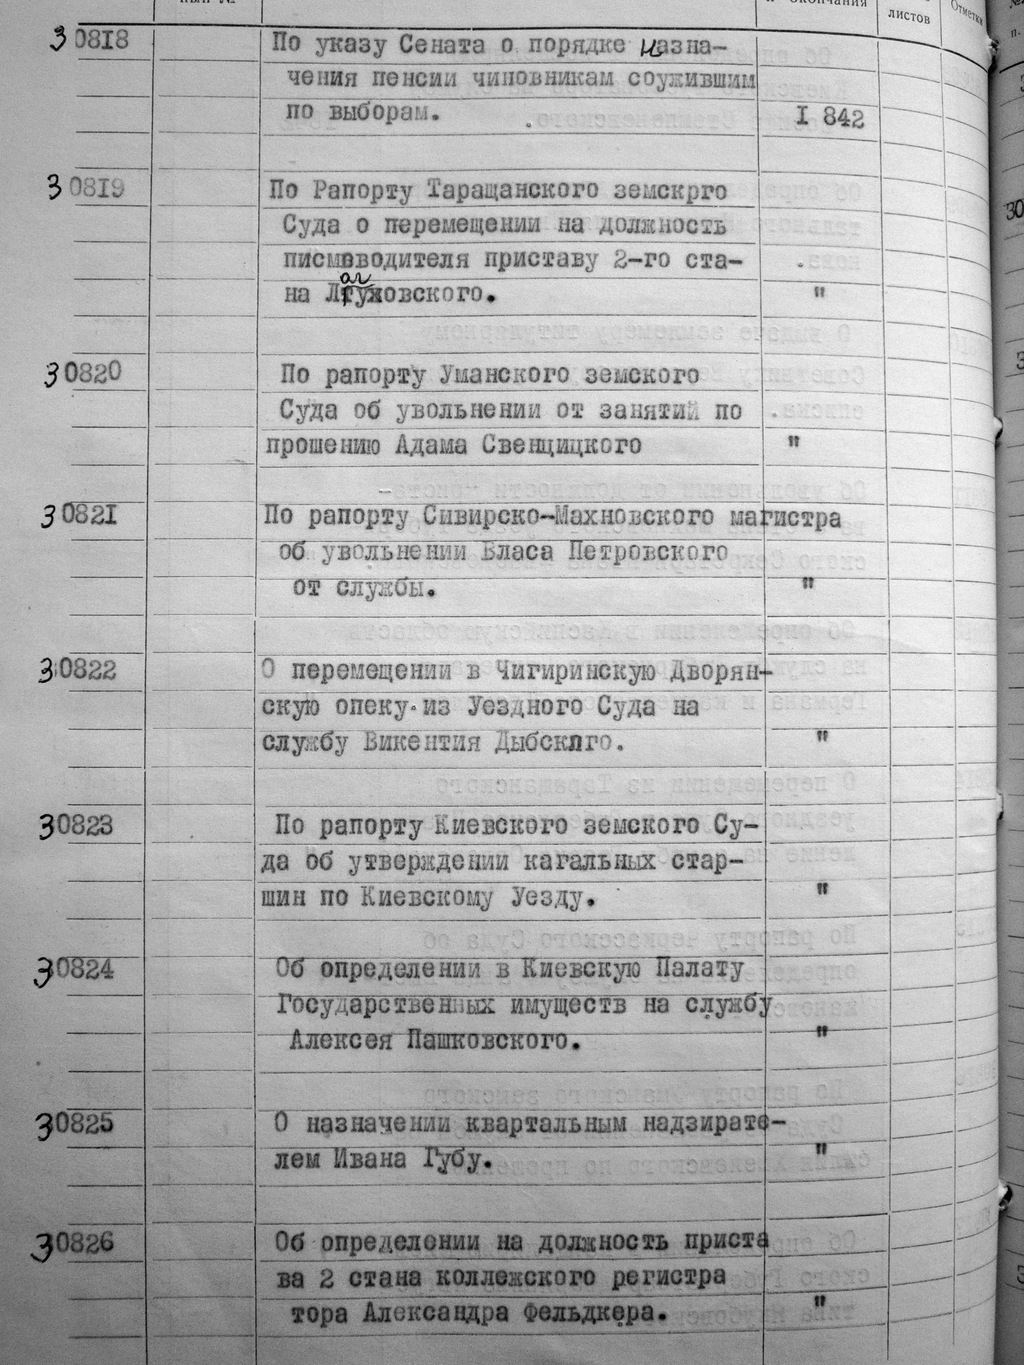 и окончания
листов
Отметки
30818 По указу Сената о порядке назна-
чения пенсии чиновникам соужившим
по выборам. I 842
30819 По Рапорту Таращанского земскрго
Суда о перемещении на должность
писмвводителя приставу 2-го ста-
на Лагуховского. "
30820 По рапорту Уманского земского
Суда об увольнении от занятий по
прошению Адама Свенцицкого "
30821 По рапорту Сивирско-Махновского магистра
об увольнении Власа Петровского
от службы. "
30822 О перемещении в Чигиринскую Дворян-
скую опеку из Уездного Суда на
службу Викентия Дыбсклго. "
30823 По рапорту Киевского земского Су-
да об утверждении кагальных стар-
шин по Киевскому Уезду. "
30824 Об определении в Киевскую Палату
Государственных имуществ на службу
Алексея Пашковского. "
30825 О назначении квартальным надзирате-
лем Ивана Губу. "
30826 Об определении на должность приста
ва 2 стана коллежского регистра
тора Александра Фельдкера. "